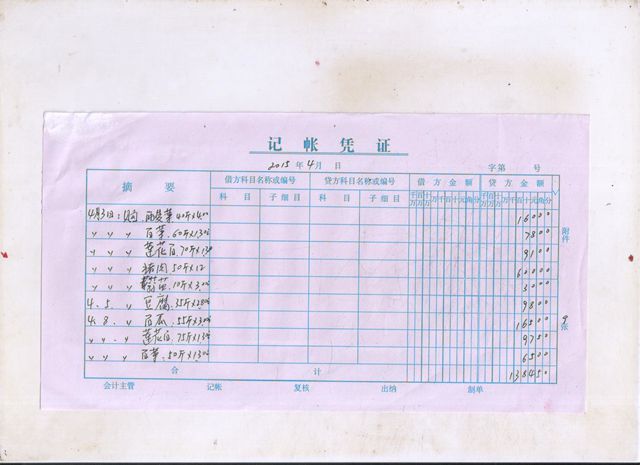 记帐凭证
2015年4月 日 字第 号
摘要 借方科目名称或编号 贷方科目名称或编号 借方金额 贷方金额 √
科目 子细目 科目 子细目 千百十万千百十元角分 千百十万千百十元角分
4月3日:购 40斤×4.00 16000
〃 〃 〃 白菜.60斤×1.30 7800
〃 〃 〃 莲花白.70斤×1.30 9100
〃 〃 〃 猪肉.50斤×12
〃 〃 〃 10斤×3.00 3000
4.5. 〃 豆腐.35斤×2.80 9800
4.8. 〃 白瓜.55斤×3.00 16500
〃 〃. 〃 莲花白.75斤×1.30 9750
〃 〃 〃 白菜.50斤×1.30 6500
合计 138450
附件 9 张
会计主管 记帐 复核 出纳 制单